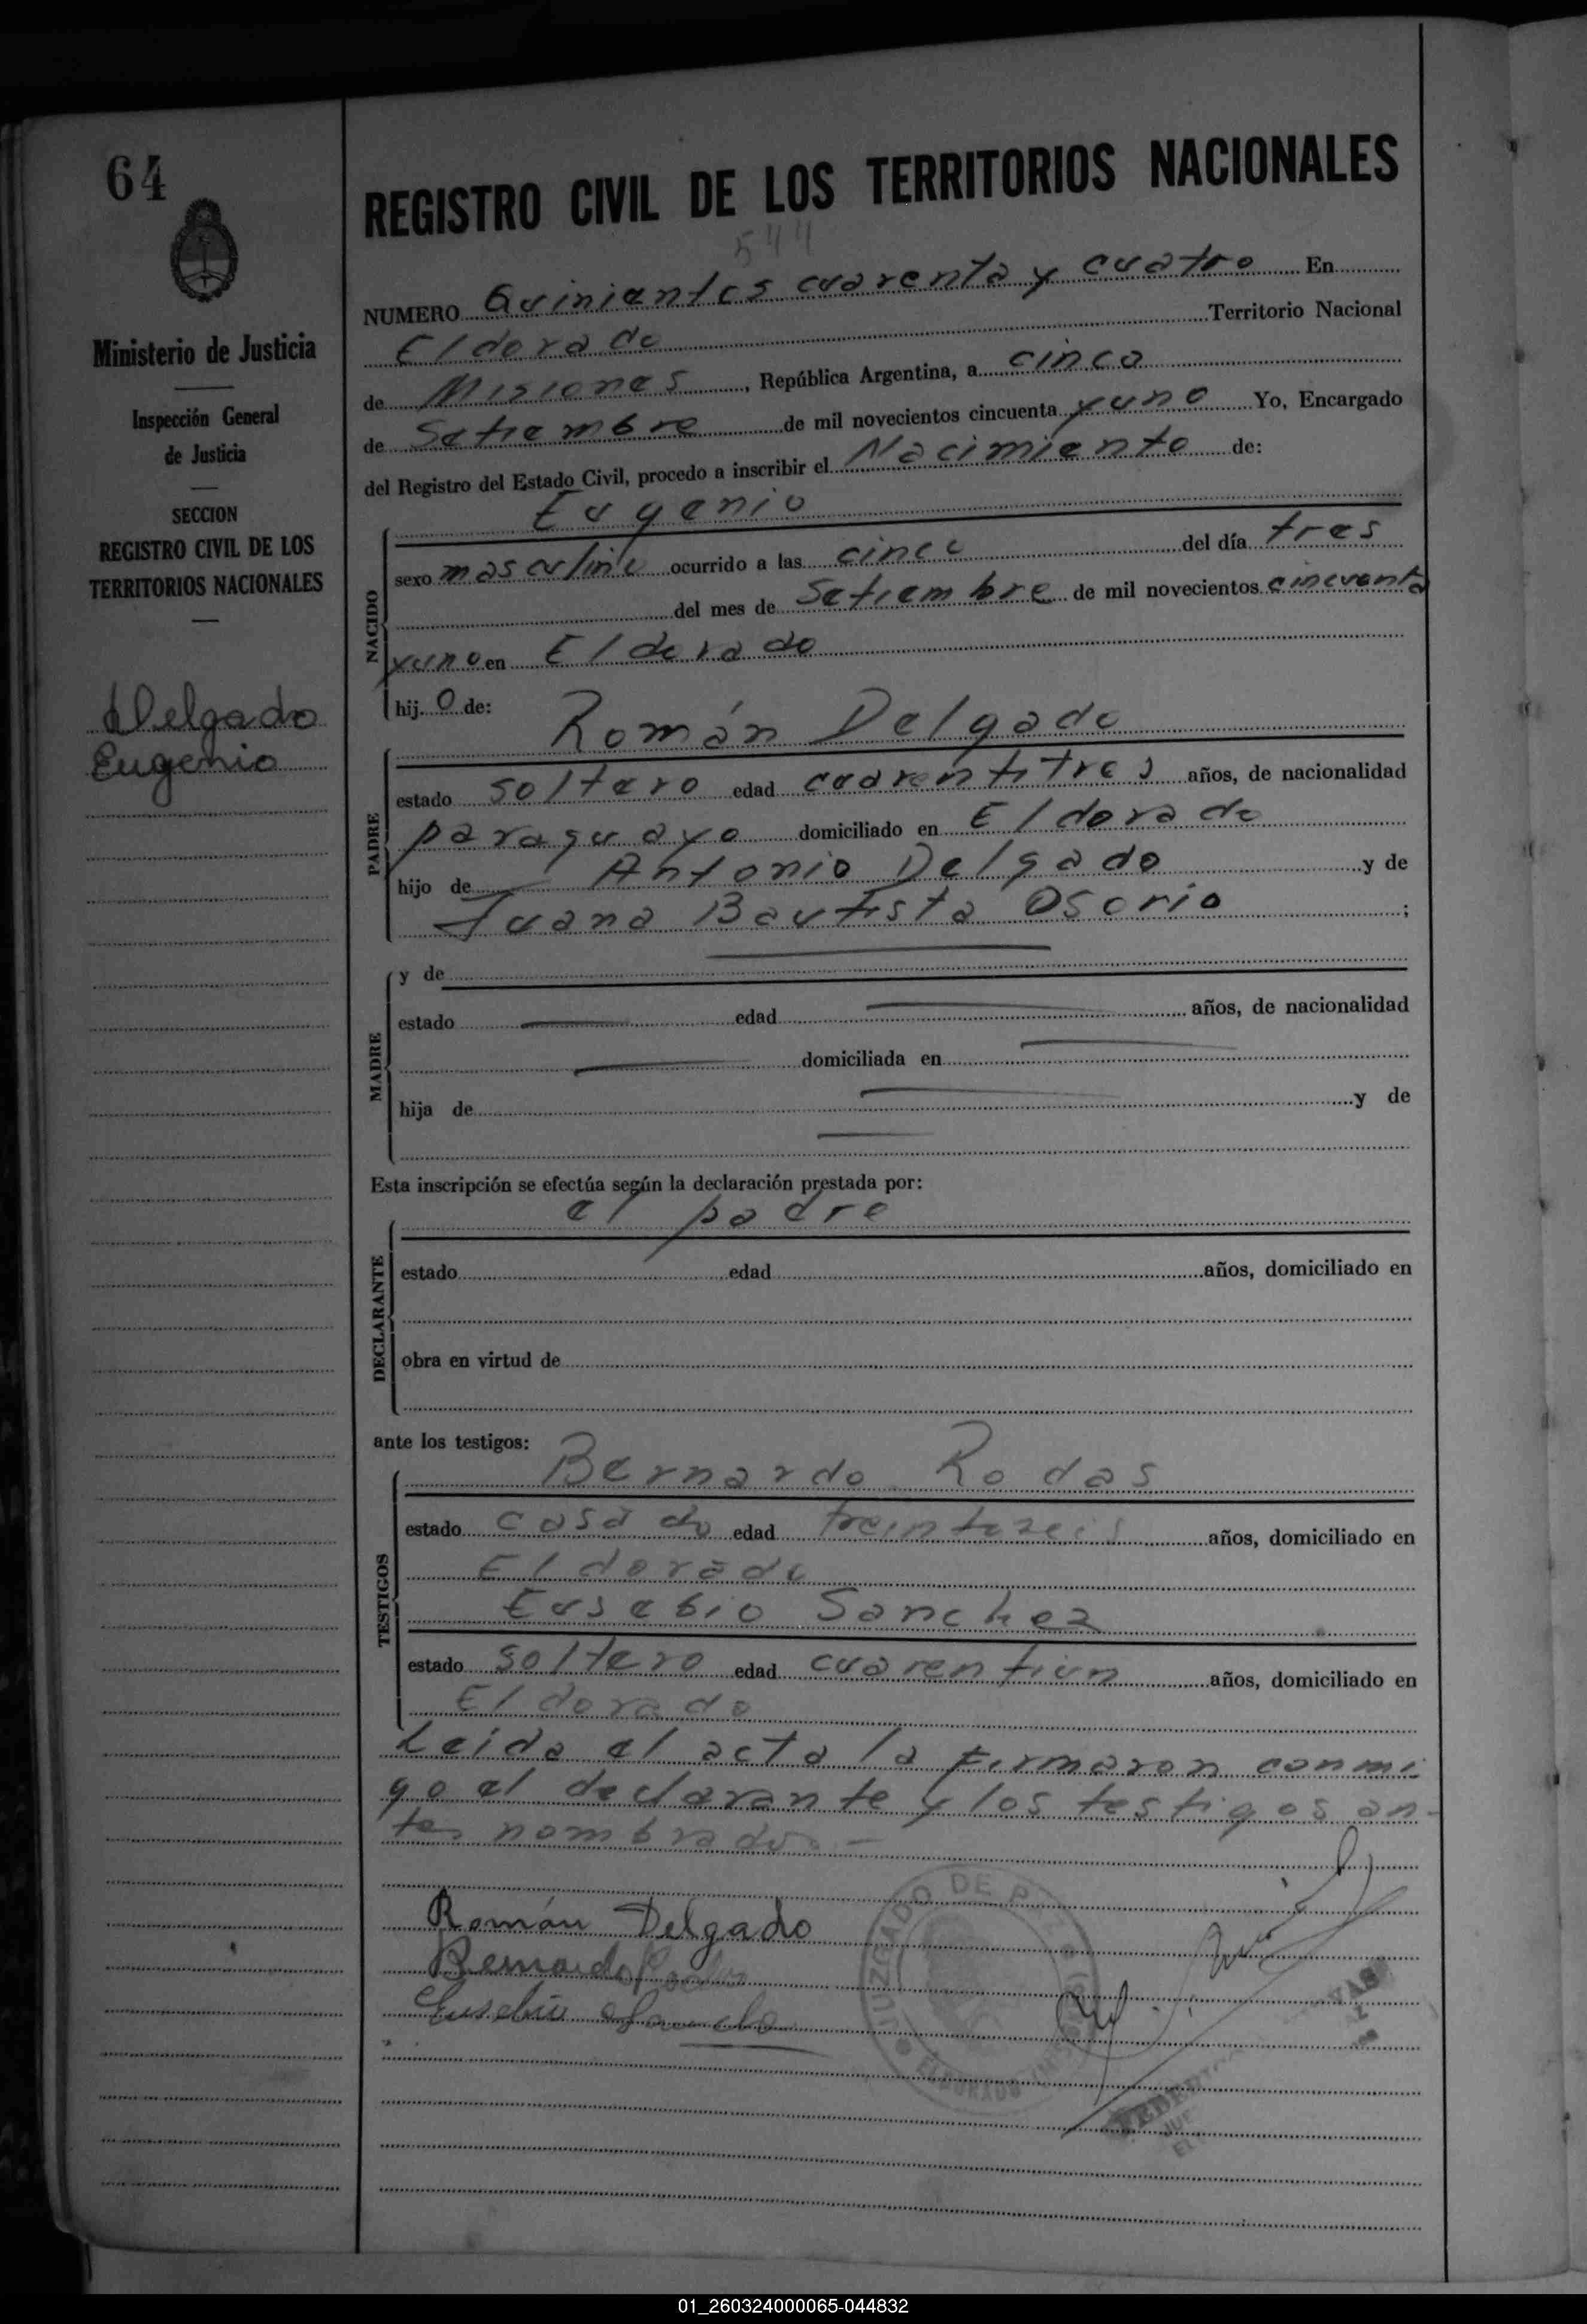 64
REGISTRO CIVIL DE LOS TERRITORIOS NACIONALES
544
NUMERO Quinientos cuarenta y cuatro En
Eldorado Territorio Nacional
de Misiones, República Argentina, a cinco
de Setiembre de mil novecientos cincuenta y uno Yo, Encargado
del Registro del Estado Civil, procedo a inscribir el Nacimiento de:
Ministerio de Justicia
Inspección General
de Justicia
SECCION
REGISTRO CIVIL DE LOS
TERRITORIOS NACIONALES
Delgado
Eugenio
NACIDO
Eugenio
sexo masculino ocurrido a las cinco del día tres
del mes de Setiembre de mil novecientos cincuenta
y uno en Eldorado
hij o de:
PADRE
Román Delgado
estado soltero edad cuarentitres años, de nacionalidad
paraguayo domiciliado en Eldorado
hijo de Antonio Delgado y de
Juana Bautista Osorio ;
MADRE
y de
estado edad años, de nacionalidad
domiciliada en
hija de y de
Esta inscripción se efectúa según la declaración prestada por:
DECLARANTE
el padre
estado edad años, domiciliado en
obra en virtud de
ante los testigos:
TESTIGOS
Bernardo Rodas
estado casado edad treintiseis años, domiciliado en
Eldorado
Eusebio Sanchez
estado soltero edad cuarentiun años, domiciliado en
Eldorado
Leida el acta la firmaron conmi
go el declarante y los testigos an-
tes nombrados.-
Román Delgado
Bernardo Rodas
Eusebio Sanchez
JUZGADO DE PAZ
ELDORADO (MISIONES)
01_260324000065-044832